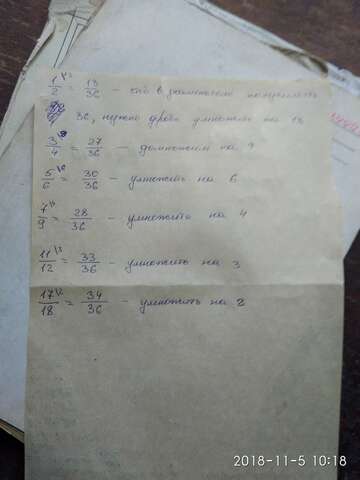 1/2 = 18/36 - чтоб в знаменателе получилось
36, нужно дробь умножить на 18
3/4 \9 = 27/36 - домножаем на 9
5/6 \6 = 30/36 - умножить на 6
7/9 = 28/36 - умножить на 4
11/12 \3 = 33/36 - умножить на 3
17/18 \2 = 34/36 - умножить на 2
2018-11-5 10:18